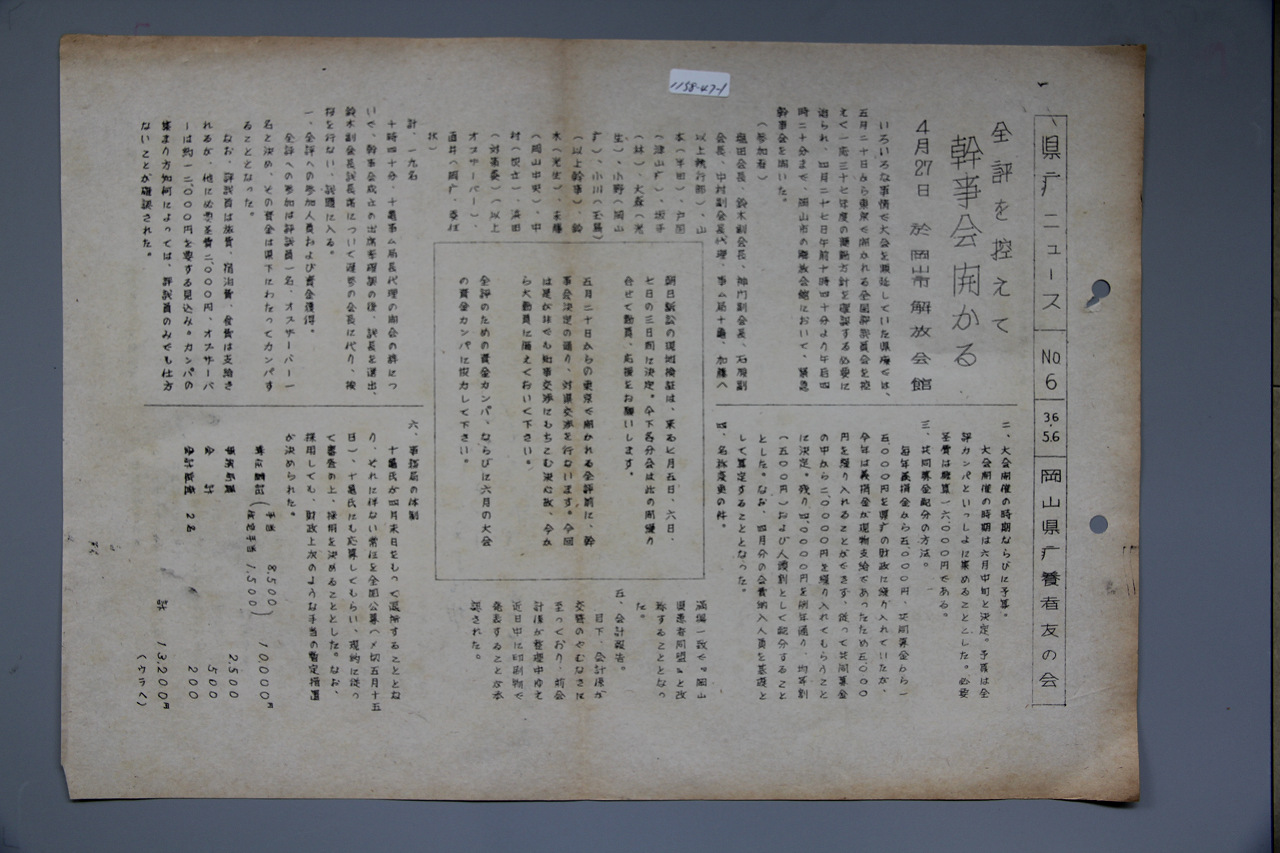 1158-47-1
県疒ニュース
No 6
36.5.6
岡山県疒養者友の会
全評を控えて
幹事会開かる
4月27日 於岡山市解放会館
いろいろな事情で大会を順延していた県療では、
五月二十日から東京で開かれる全国評議員会を控
えて一応三十七年度の運動方針を確認する必要に
迫られ、四月二十七日午前十時四十分より午后四
時二十分まで、岡山市の解放会館において、緊急
幹事会を開いた。
(参加者)
塩田会長、鈴木副会長、神門副会長、石原副
会長、中村副会長代理、事ム局十亀、加藤へ
以上執行部)、山
本(早田)、戸岡
(津山疒)、坂手
(林)、大森(光
生)、小野(岡山
疒)、小川(玉島)
(以上幹事)、鈴
木(光生)、末藤
(岡山中央)、中
村(牧立)、浜田
(対策委)(以上
オブザーバー)、
酒井(岡疒、委任
状)
計、一九名
十時四十分、十亀事ム局長代理の開会の辞につ
いで、幹事会成立の出席者確認の後、議長を選出、
鈴木副会長議長席について運営の会長に代り、挨
拶を行ない、議題に入る。
一、全評への参加人員および資金獲得。
全評への参加は評議員一名、オブザーバー一
名と決め、その資金は県下にわたってカンパす
ることとなった。
なお、評議員は旅費、宿泊費、食費は支給さ
れるが、他に必要至費二、〇〇〇円、オブザーバ
ーは約一二、〇〇〇円を要する見込み。カンパの
集まり方如何によっては、評議員のみでも仕方
ないことが確認された。
朝日訴訟の現地検証は、来る七月五日、六日、
七日の三日間に決定。今下各分会は此の間繰り
合せて動員、応援をお願いします。
五月二十日からの東京で開かれる全評前に、幹
事会決定の通り、対県交渉を行ないます。今回
は是が非でも知事交渉にもちこむ決心故、今か
ら大動員に備えておいて下さい。
全評のための資金カンパ、ならびに六月の大会
の資金カンパに協力して下さい。
二、大会開催の時期ならびに予算。
大会開催の時期は六月中旬と決定。予算は全
評カンパといっしょに集めることとした。必要
至費は概算一六、〇〇〇円である。
三、共同募金配分の方法。
毎年義損金から五〇〇〇円、共同募金から一
五、〇〇〇円を県疒の財政に繰り入れていたが、
今年は義損金が現物支給であったため五〇〇〇
円を繰り入れることができず、従って共同募金
の中から二、〇〇〇円を繰り入れてもらうこと
に決定。残り四、〇〇〇円を例年通り、均等割
(五〇〇円)および人頭割として配分すること
とした。なお、四月分の会費納入人員を基礎と
して算定することとなった。
四、名称変更の件。
満場一致で『岡山
県患者同盟』と改
称することとなっ
た。
五、会計報告。
目下、会計係が
交替のやむなきに
至っており、前会
計係が整理中ゆえ
近日中に印刷物で
発表することが承
認された。
六、事務局の体制
十亀氏が四月末日をもって退陣することとな
り、それに伴ない常任を全国公募(〆切五月十五
日)、十亀氏にも応募してもらい、規約に従っ
て審査の上、採用を決めることとした。なお、
採用しても、財政上次のような手当の暫定措置
が決められた。
専従書記(手当 8,500) 10,000円
2,500
会計 500
会計監査 2名 200
計 13,200円
(ウラへ)